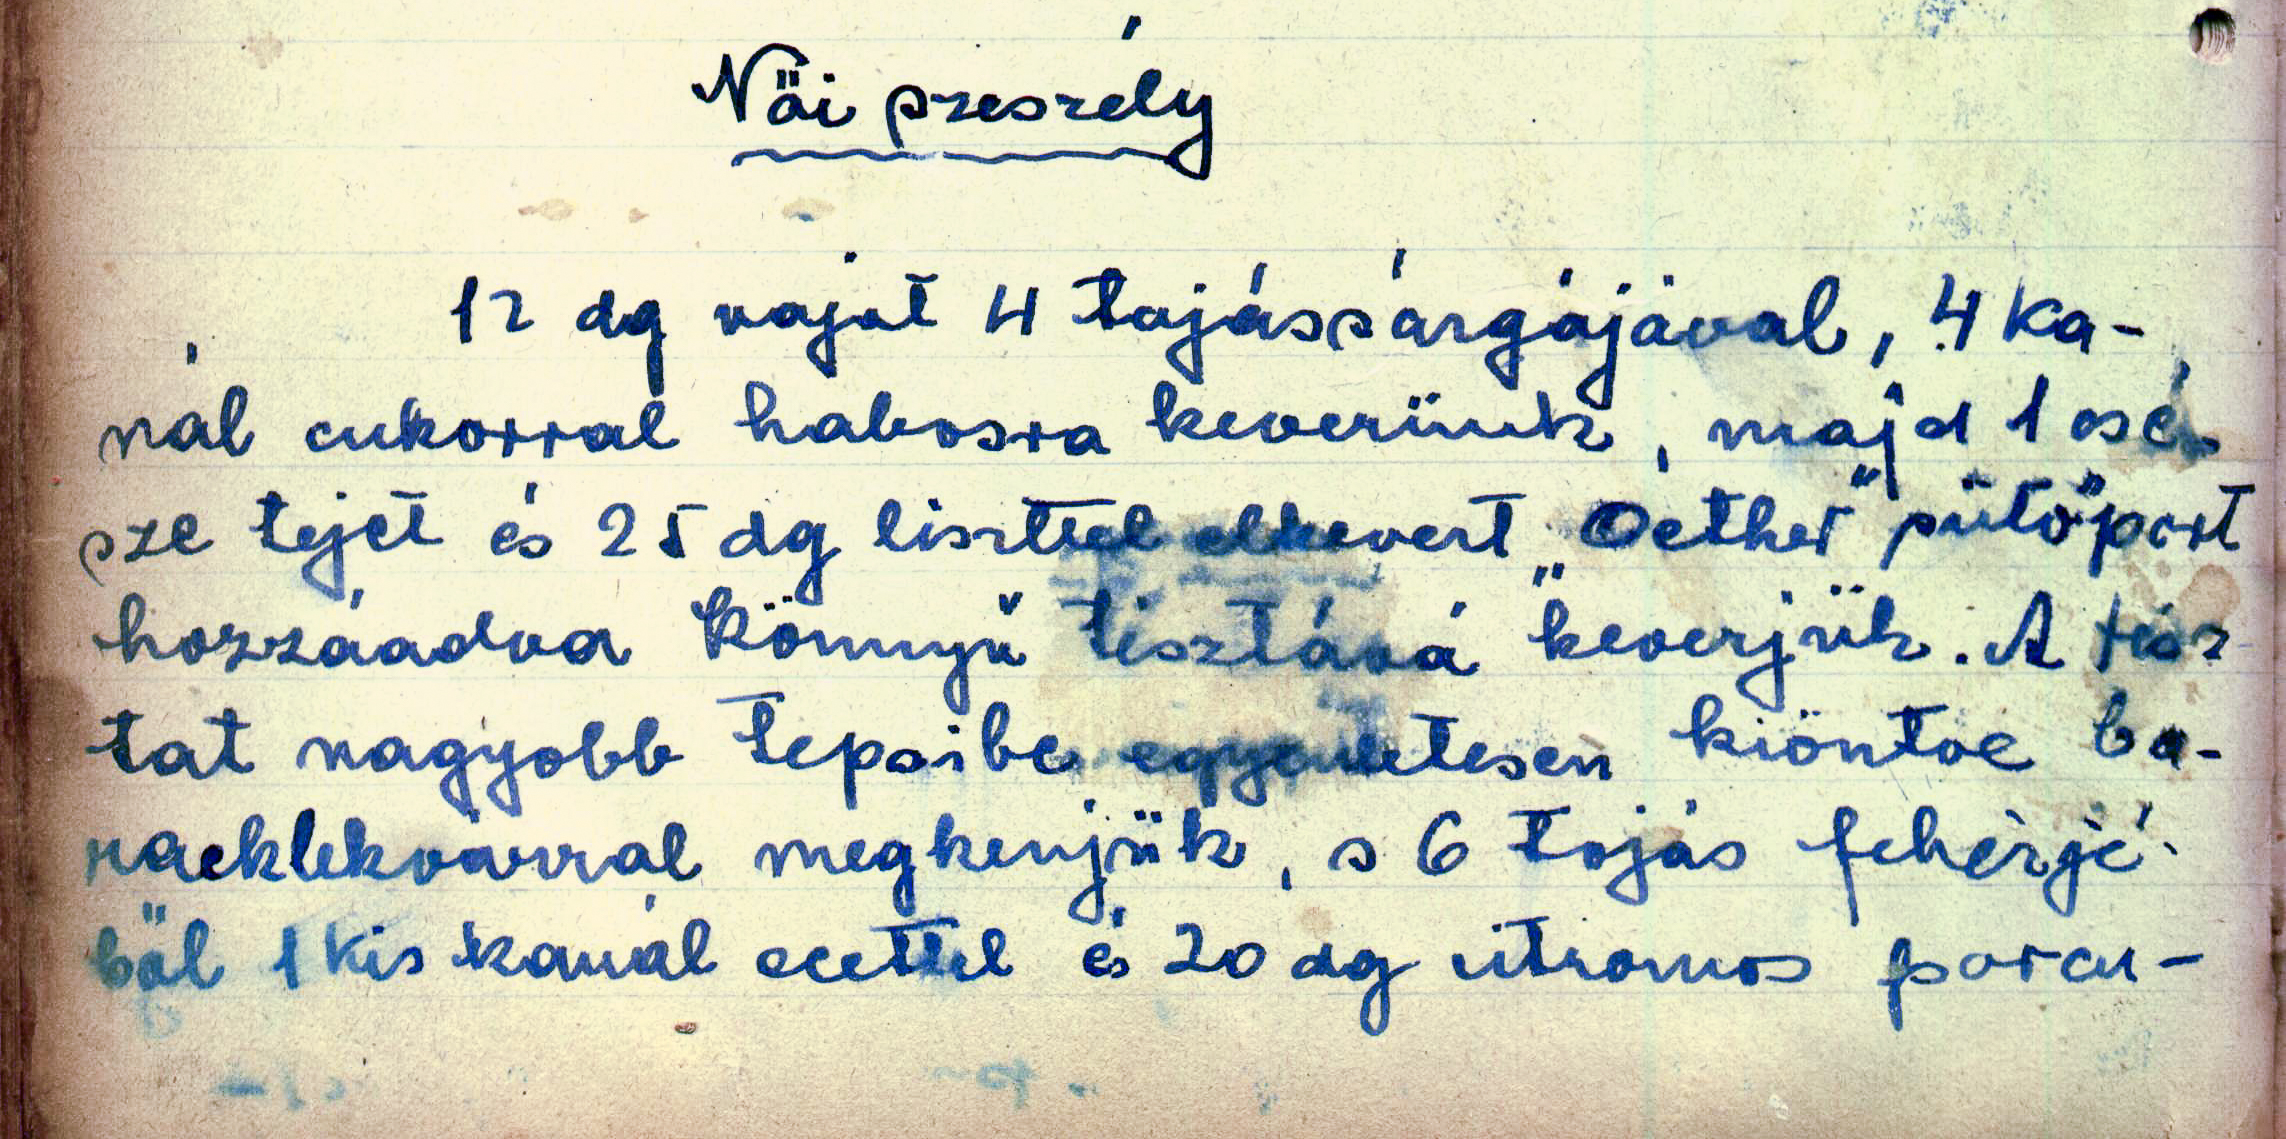 Női szeszély
12 dg vajat 4 tojássárgájával, 4 ka-
nál cukorral habosra keverünk, majd 1 csé
sze tejet és 25 dg liszttel elkevert "Oether" sütőport
hozzáadva könnyű tésztává keverjük. A tész
tat nagyobb tepsibe egyenletesen kiöntve ba-
racklekvárral megkenjük, s 6 tojás fehérjé-
ből 1 kis kanál ecettel és 20 dg citromos porcu-